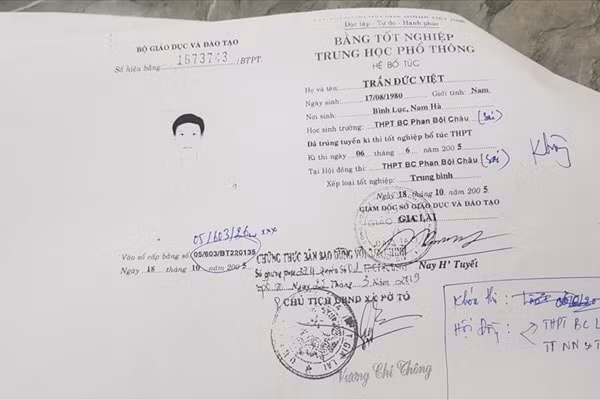 Độc lập - Tự do - Hạnh phúc
BỘ GIÁO DỤC VÀ ĐÀO TẠO
Số hiệu bằng: 1673743 /BTPT.
BẰNG TỐT NGHIỆP
TRUNG HỌC PHỔ THÔNG
HỆ BỔ TÚC
Họ và tên: TRẦN ĐỨC VIỆT
Ngày sinh: 17/08/1980 Giới tính: Nam
Nơi sinh: Bình Lục, Nam Hà
Học sinh trường: THPT BC Phan Bội Châu (sai)
Đã trúng tuyển kì thi tốt nghiệp bổ túc THPT
Kì thi ngày 06 tháng 6 năm 2005
Tại Hội đồng thi: THPT BC Phan Bội Châu (sai)
Xếp loại tốt nghiệp: Trung bình
Ngày 18 tháng 10 năm 2005
GIÁM ĐỐC SỞ GIÁO DỤC VÀ ĐÀO TẠO
GIA LAI
Nay H' Tuyết
Vào sổ cấp bằng số 05/603/BT220135
Ngày 18 tháng 10 năm 2005
CHỨNG THỰC BẢN SAO ĐÚNG VỚI BẢN CHÍNH
Số chứng thực
Ngày 22 Tháng 3 Năm 2019
CHỦ TỊCH UBND XÃ PỜ TÓ
Vương Chí Thông
Khóa thi:
Hội đồng: THPT BC L
TT NN